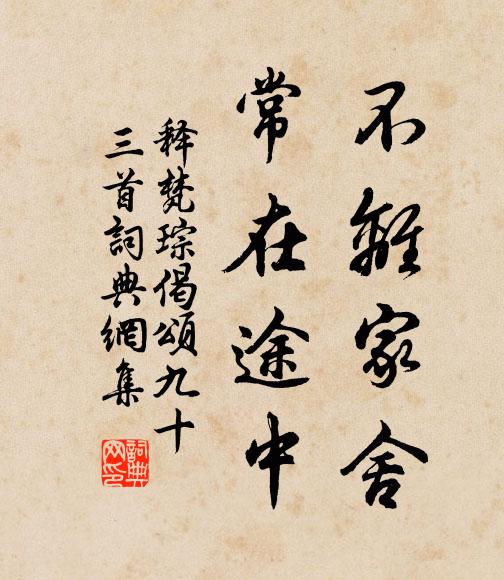 不離家舍
常在途中
释梵琮偈頌九十
三首詞典網集
詞典
网印